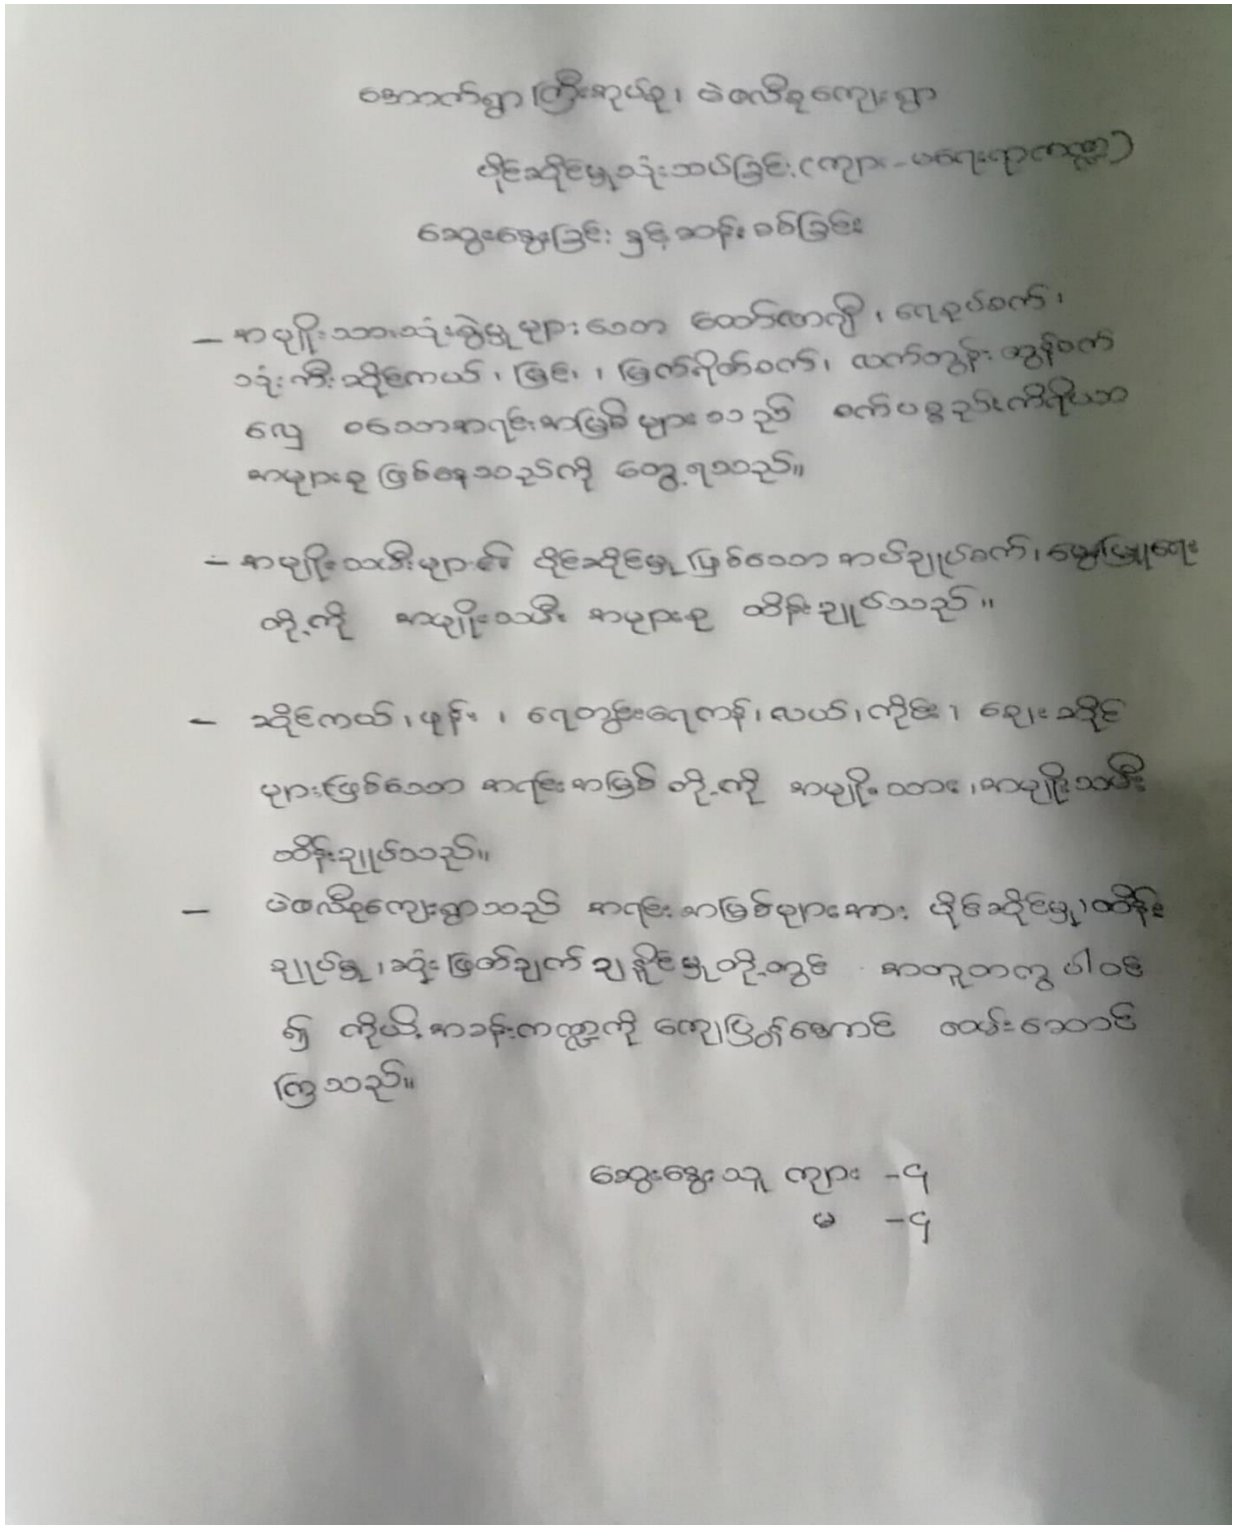 အောက်ရွာကြီးအုပ်စု၊ ဖဲဇလီစုကျေးရွာ
ပိုင်ဆိုင်မှုသုံးသပ်ခြင်း (ကျား-မရေးရာကဏ္ဍ)
ဆွေးနွေးခြင်း နှင့် ဆန်းစစ်ခြင်း
– အမျိုးသားသုံးစွဲမှုများသော ထော်လာဂျီ၊ ရေစုပ်စက်၊
သုံးဘီးဆိုင်ကယ်၊ မြင်း၊ မြက်ရိတ်စက်၊ လက်တွန်းထွန်စက်
လှေ စသောအရင်းအမြစ်များသည် စက်ပစ္စည်းကိရိယာ
အများစုဖြစ်နေသည်ကို တွေ့ရသည်။
– အမျိုးသမီးများ၏ ပိုင်ဆိုင်မှုဖြစ်သော အပ်ချုပ်စက်၊ မွေးမြူရေး
တို့ကို အမျိုးသမီး အများစု ထိန်းချုပ်သည်။
– ဆိုင်ကယ်၊ ဖုန်း၊ ရေတွင်းရေကန်၊ လယ်၊ ကိုင်း၊ ဈေးဆိုင်
များဖြစ်သော အရင်းအမြစ်တို့ကို အမျိုးသား၊ အမျိုးသမီး
ထိန်းချုပ်သည်။
– ဖဲဇလီစုကျေးရွာသည် အရင်းအမြစ်များအား ပိုင်ဆိုင်မှု၊ ထိန်း
ချုပ်မှု၊ ဆုံးဖြတ်ချက်ချနိုင်မှုတို့တွင် အတူတကွပါဝင်
၍ ကိုယ့်အခန်းကဏ္ဍကို ကျေပြွန်အောင် ထမ်းဆောင်
ကြသည်။
ဆွေးနွေးသူ ကျား -၄
မ -၄